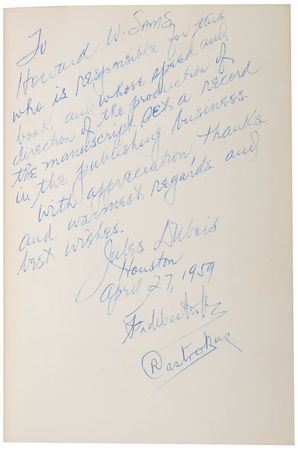 To
Howard W. Sams,
who is responsible for this
book and whose speed and
direction of the production of
the manuscript set a record
in the publishing business.
With appreciation, thanks
and warmest regards and
best wishes.
Jules Dubois
Houston
April 27, 1959
Fidel Castro Ruz